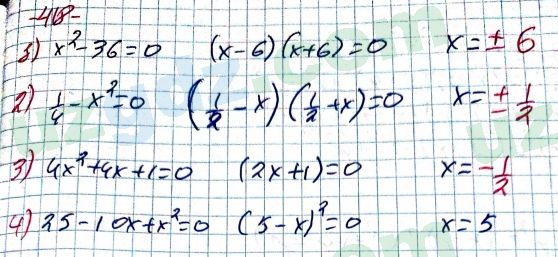 -418-
1) x² - 36 = 0 (x - 6)(x + 6) = 0 x = ± 6
2) 1/4 - x² = 0 (1/2 - x)(1/2 + x) = 0 x = ± 1/2
3) 4x² + 4x + 1 = 0 (2x + 1) = 0 x = - 1/2
4) 25 - 10x + x² = 0 (5 - x)² = 0 x = 5